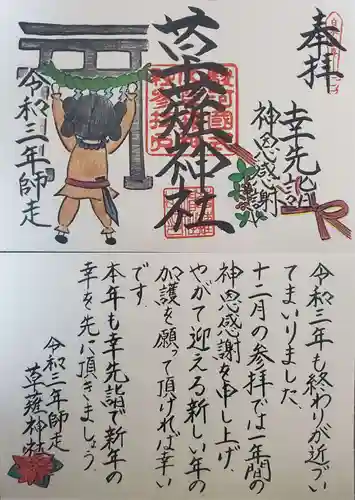 奉拝
幸先詣
神恩感謝
草薙神社
令和三年師走
令和三年も終わりが近づい
てまいりました、
十二月の参拝では一年間の
神恩感謝を申し上げ、
やがて迎える新しい年の
加護を願って頂ければ幸い
です。
本年も幸先詣で新年の
幸を先に頂きましょう。
令和三年師走
草薙神社